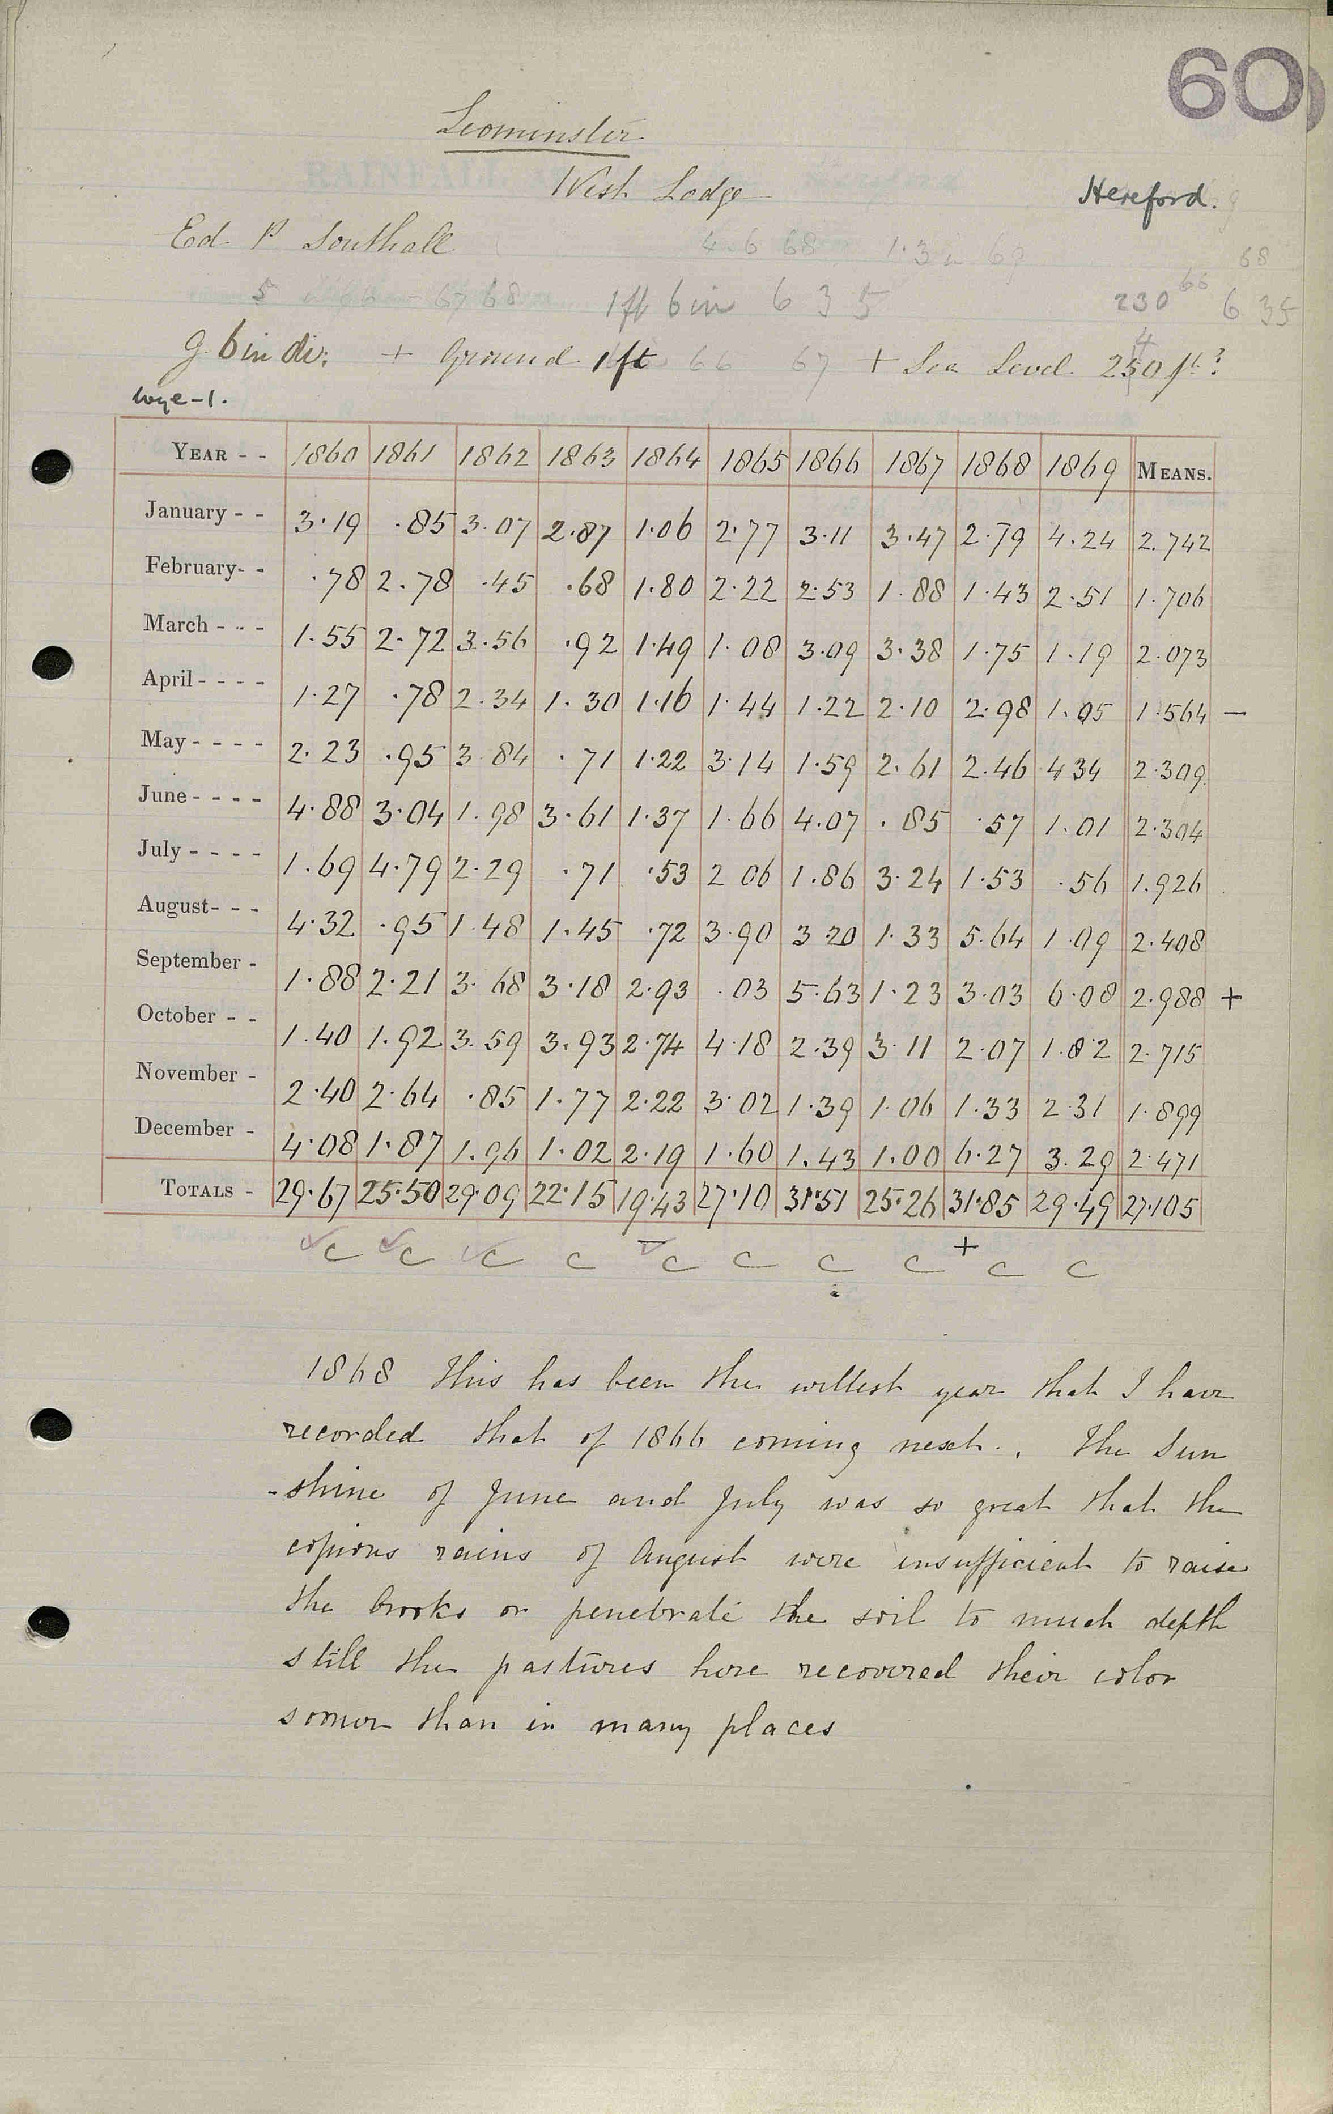 60
Leominster
West Lodge
Hereford.
Ed P Southall
4 6 68 1.3 69 68
5 67 68 1 ft 6 in 6 3 5 230 66 6 35
g. 6 in di. + Ground 1 ft 66 67 + Sea Level 250 ft ?
Wye-1.
YEAR - - 1860 1861 1862 1863 1864 1865 1866 1867 1868 1869 MEANS.
January - - 3.19 .85 3.07 2.87 1.06 2.77 3.11 3.47 2.79 4.24 2.742
February- - .78 2.78 .45 .68 1.80 2.22 2.53 1.88 1.43 2.51 1.706
March - - - 1.55 2.72 3.56 .92 1.49 1.08 3.09 3.38 1.75 1.19 2.073
April - - - - 1.27 .78 2.34 1.30 1.16 1.44 1.22 2.10 2.98 1.05 1.564 —
May - - - - 2.23 .95 3 84 .71 1.22 3.14 1.59 2.61 2.46 4 34 2.309
June - - - - 4.88 3.04 1.98 3.61 1.37 1.66 4.07 .85 .57 1.01 2.304
July - - - - 1.69 4.79 2.29 .71 .53 2 06 1.86 3.24 1.53 .56 1.926
August- - - 4.32 .95 1 48 1.45 .72 3.90 3 20 1.33 5.64 1.09 2.408
September - 1.88 2.21 3.68 3.18 2.93 .03 5.63 1.23 3.03 6.08 2.988 +
October - - 1.40 1.92 3.59 3.93 2.74 4.18 2.39 3 11 2.07 1.82 2.715
November - 2.40 2.64 .85 1.77 2.22 3.02 1.39 1.06 1.33 2 31 1.899
December - 4.08 1.87 1.96 1.02 2.19 1.60 1.43 1.00 6.27 3.29 2.471
TOTALS - 29.67 25.50 29.09 22.15 19.43 27.10 31.51 25.26 31.85 29.49 27.105
c c c c c c c c + c c
a
1868 This has been the wettest year that I have
recorded that of 1866 coming next. The Sun
-shine of June and July was so great that the
copious rains of August were insufficient to raise
the brooks or penetrate the soil to much depth
still the pastures here recovered their color
sooner than in many places